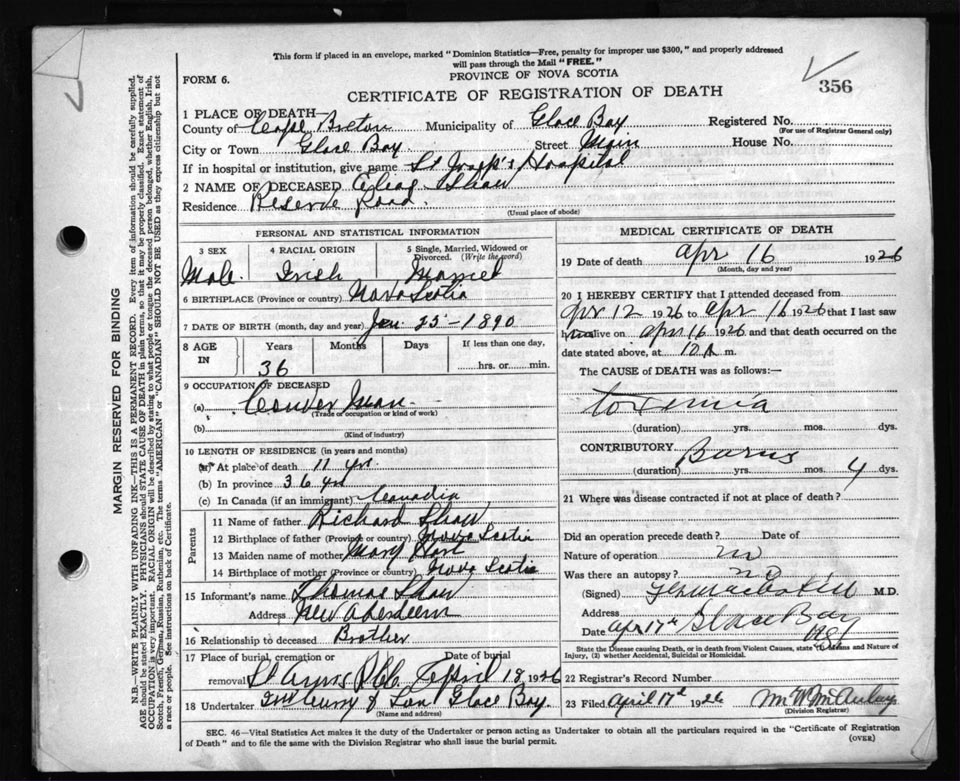 This form if placed in an envelope, marked "Dominion Statistics—Free, penalty for improper use $300," and properly addressed
will pass through the Mail "FREE."
PROVINCE OF NOVA SCOTIA
FORM 6.
356
CERTIFICATE OF REGISTRATION OF DEATH
1 PLACE OF DEATH—
County of Cape Breton Municipality of Glace Bay Registered No.
(For use of Registrar General only)
City or Town Glace Bay Street Main House No.
If in hospital or institution, give name St Joseph's Hospital
2 NAME OF DECEASED Shaw
Residence Reserve Road.
(Usual place of abode)
PERSONAL AND STATISTICAL INFORMATION
3 SEX 4 RACIAL ORIGIN 5 Single, Married, Widowed or Divorced. (Write the word)
Male Irish Married
6 BIRTHPLACE (Province or country) Nova Scotia
7 DATE OF BIRTH (month, day and year) Jan 25 - 1890
8 AGE IN Years Months Days If less than one day,
36 hrs. or min.
9 OCCUPATION OF DECEASED
(a) Man
(Trade or occupation or kind of work)
(b)
(Kind of industry)
10 LENGTH OF RESIDENCE (in years and months)
(a) At place of death 11 yr.
(b) In province 36 yr
(c) In Canada (if an immigrant)
Parents
11 Name of father Richard Shaw
12 Birthplace of father (Province or country) Nova Scotia
13 Maiden name of mother Mary
14 Birthplace of mother (Province or country) Nova Scotia
15 Informant's name Thomas Shaw
Address New Aberdeen
16 Relationship to deceased Brother
17 Place of burial, cremation or Date of burial
removal St Anns April 18 1926
18 Undertaker & Son Glace Bay.
(Name and address)
MEDICAL CERTIFICATE OF DEATH
19 Date of death Apr 16 1926
(Month, day and year)
20 I HEREBY CERTIFY that I attended deceased from
Apr 12 1926 to Apr 16 1926 that I last saw
him alive on Apr 16 1926 and that death occurred on
date stated above, at 10 A m.
The CAUSE of DEATH was as follows:—
toxemia
(duration) yrs. mos. dys.
CONTRIBUTORY Burns
(duration) yrs. mos. 4 dys.
21 Where was disease contracted if not at place of death?
Did an operation precede death? Date of
Nature of operation no
Was there an autopsy? no
(Signed) M.D.
Address
Date Apr 17th Glace Bay
State the Disease causing Death, or in death from Violent Causes, state (1) Means and Nature of
Injury, (2) whether Accidental, Suicidal or Homicidal.
22 Registrar's Record Number
23 Filed April 17th 1926
(Division Registrar)
SEC. 46—Vital Statistics Act makes it the duty of the Undertaker or person acting as Undertaker to obtain all the particulars required in the "Certificate of Registration
of Death" and to file the same with the Division Registrar who shall issue the burial permit. (OVER)
MARGIN RESERVED FOR BINDING
N.B.—WRITE PLAINLY WITH UNFADING INK—THIS IS A PERMANENT RECORD. Every item of information should be carefully supplied.
AGE should be stated EXACTLY. PHYSICIANS should STATE CAUSE OF DEATH in plain terms, so that it may be properly classified. Exact statement of
OCCUPATION is very important. RACIAL ORIGIN will be described by stating to what people or tongue the deceased person belonged, whether English, Irish,
Scotch, French, German, Russian, Ruthenian, etc. The terms "AMERICAN" or "CANADIAN" SHOULD NOT BE USED as they express citizenship but not
a race or people. See instructions on back of Certificate.